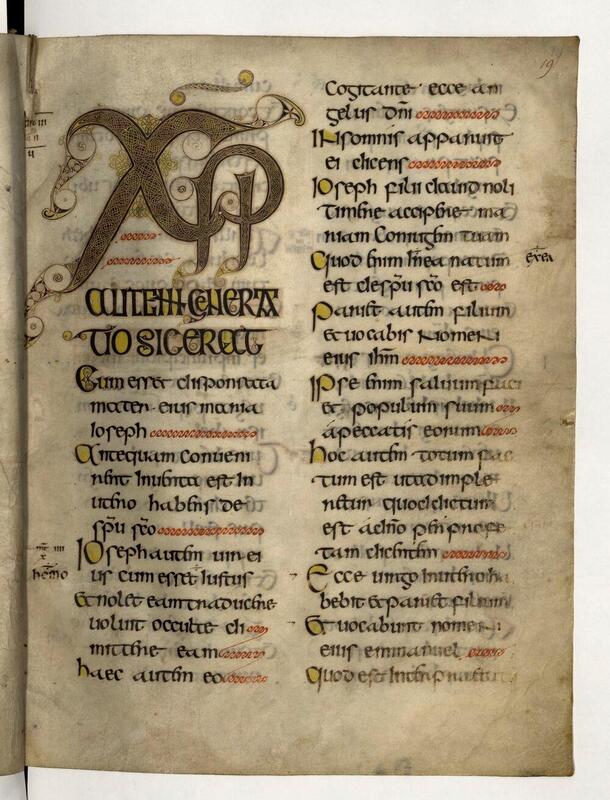 19
XPI
AUTEM GENERA
TIO SIC ERAT
Cum esset disponsata
mater· eius maria
Ioseph
Antequam conueni
rent Inuenta est In
utero habens de
spu sco
Ioseph autem uir ei
us cum esset Iustus
Et nolet eam traducere
uoluit occulte di
mittere eam
haec autem eo
Cogitante· ecce an
gelus dni
In somnis apparuit
ei dicens
Ioseph filii dauid noli
timere accipere ma
riam Coniugem tuam
Quod enim In ea natum
est de spu sco est
Pariet autem filium
Et uocabis nomen
eius ihm
Ipse enim saluum faci
et populum suum
a peccatis eorum
hoc autem totum fac
tum est ut adimple
retur quod dictum
est a dno per profe
tam dicentem
Ecce uirgo In utero ha
bebit Et pariet filium
Et uocabunt nomen
eius emmanuel
Quod est Interpraetat